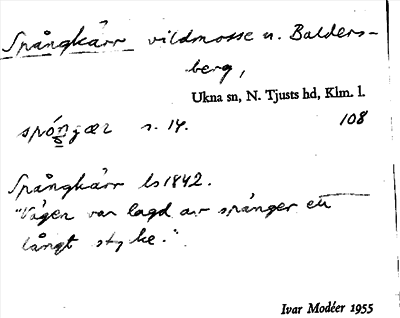 Spångkärr vildmosse n. Balders-
berg,
Ukna sn, N. Tjusts hd, Klm. l.
108
s. 14.
Spångkärr ls 1842.
"Vägen var lagd av spånger ett
långt stycke."
Ivar Modéer 1955